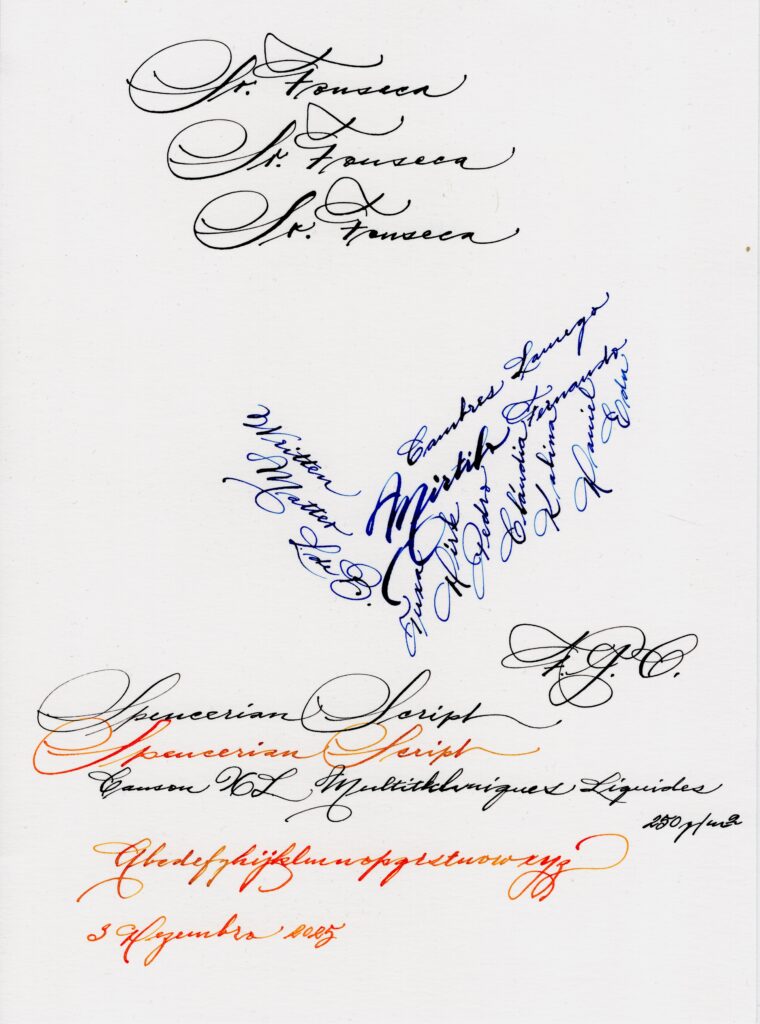 Sr. Fonseca
Sr. Fonseca
Sr. Fonseca
Written
Matter
Lda
Cambres Lamego
Mirtilo
Fernando
Tuxa
Dirk
Pedro
Cláudia
Kabina
Daniel
Edu
F. G. C.
Spencerian Script
Spencerian Script
Canson XL Multitkhniques Liquides
250 g/m2
Abcdefghijklmnopqrstuvwxyz
3 Dezembro 2025